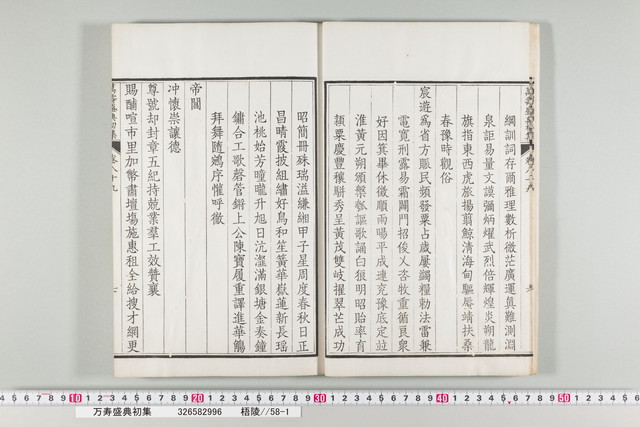 綱訓詞存爾雅理數析微茫廣運真難測淵
泉詎易量文謨彌炳燿武烈倍輝煌炎朔龍
旗指東西虎旅揚翦鯨清海甸驅靖扶桑
春豫時觀俗
宸遊爲省方賑民頻發粟占歲屢蠲糧勅法雷兼
電寬刑露易霜闢門招俊乂咨牧重循良衆
好因箕畢休徵順雨暘平成連兗豫底定竝
淮黃元朔頒槼瓠謳歌誦白狼明昭貽率育
穎粟慶豐穰騈秀呈黃茂雙岐擢翠芒成功
昭簡冊殊瑞溢縑緗甲子星周度春秋日正
昌晴霞披組繡好鳥和笙簧華嶽蓮新長瑤
池桃始芳曈曨升旭日沆瀣滿銀塘金奏鐘
鏞合工歌磬管鏘上公陳寶履重譯進華觴
拜舞隨鵷序懽呼徹
帝閽
冲懷崇讓德
尊號却封章五紀持兢業羣工效贊襄
賜酺喧市里加幣肅壇塲施惠租全給搜才網更
萬壽盛典初集
卷八十九
七
10 20 30 40 50
万寿盛典初集 326582996 梧陵//58-1